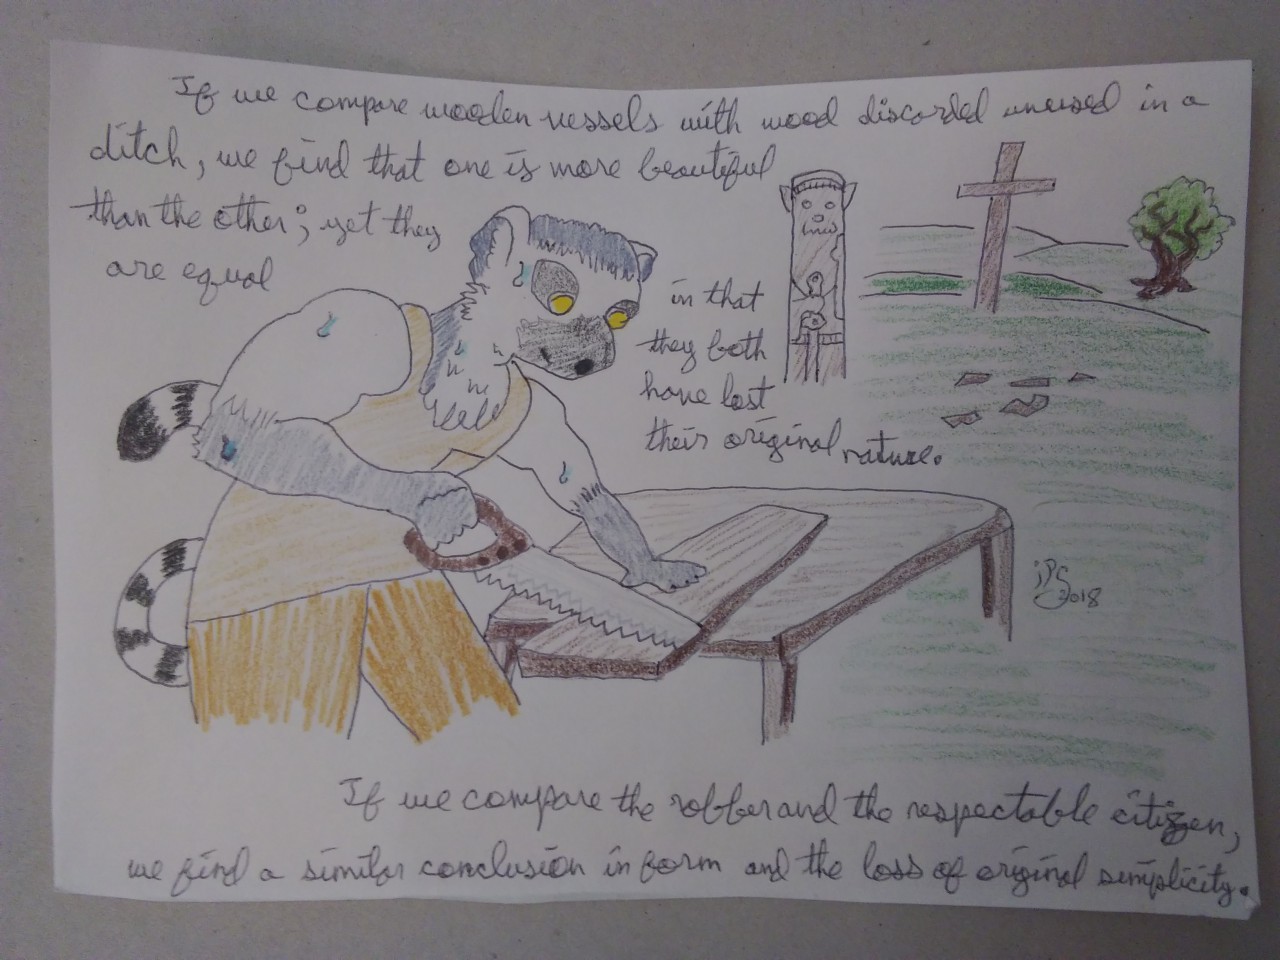 If we compare wooden vessels with wood discarded unused in a
ditch, we find that one is more beautiful
than the other; yet they
are equal
in that
they both
have lost
their original nature.
2018
If we compare the robber and the respectable citizen,
we find a similar conclusion in form and the loss of original simplicity.